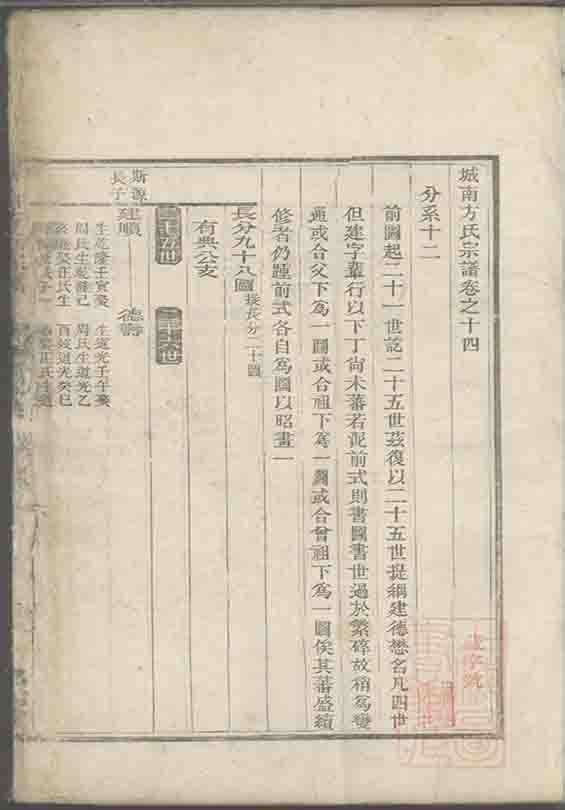 城南方氏宗譜卷之十四
分系十二
前圖起二十一世訖二十五世茲復以二十五世提綱建德懋名凡四世
但建字輩行以下丁尚未蕃若泥前式則書圖書世過於繁碎故稍為變
通或合父下為一圖或合祖下為一圖或合曾祖下為一圖俟其蕃盛續
修者仍踵前式各自為圖以昭畫一
長分九十八圖接長分二十圖
有典公支
二十五世
二十六世
斯源
長子
建順
生乾隆壬寅
周氏生乾隆己
德壽
生道光壬午
周氏生道光乙